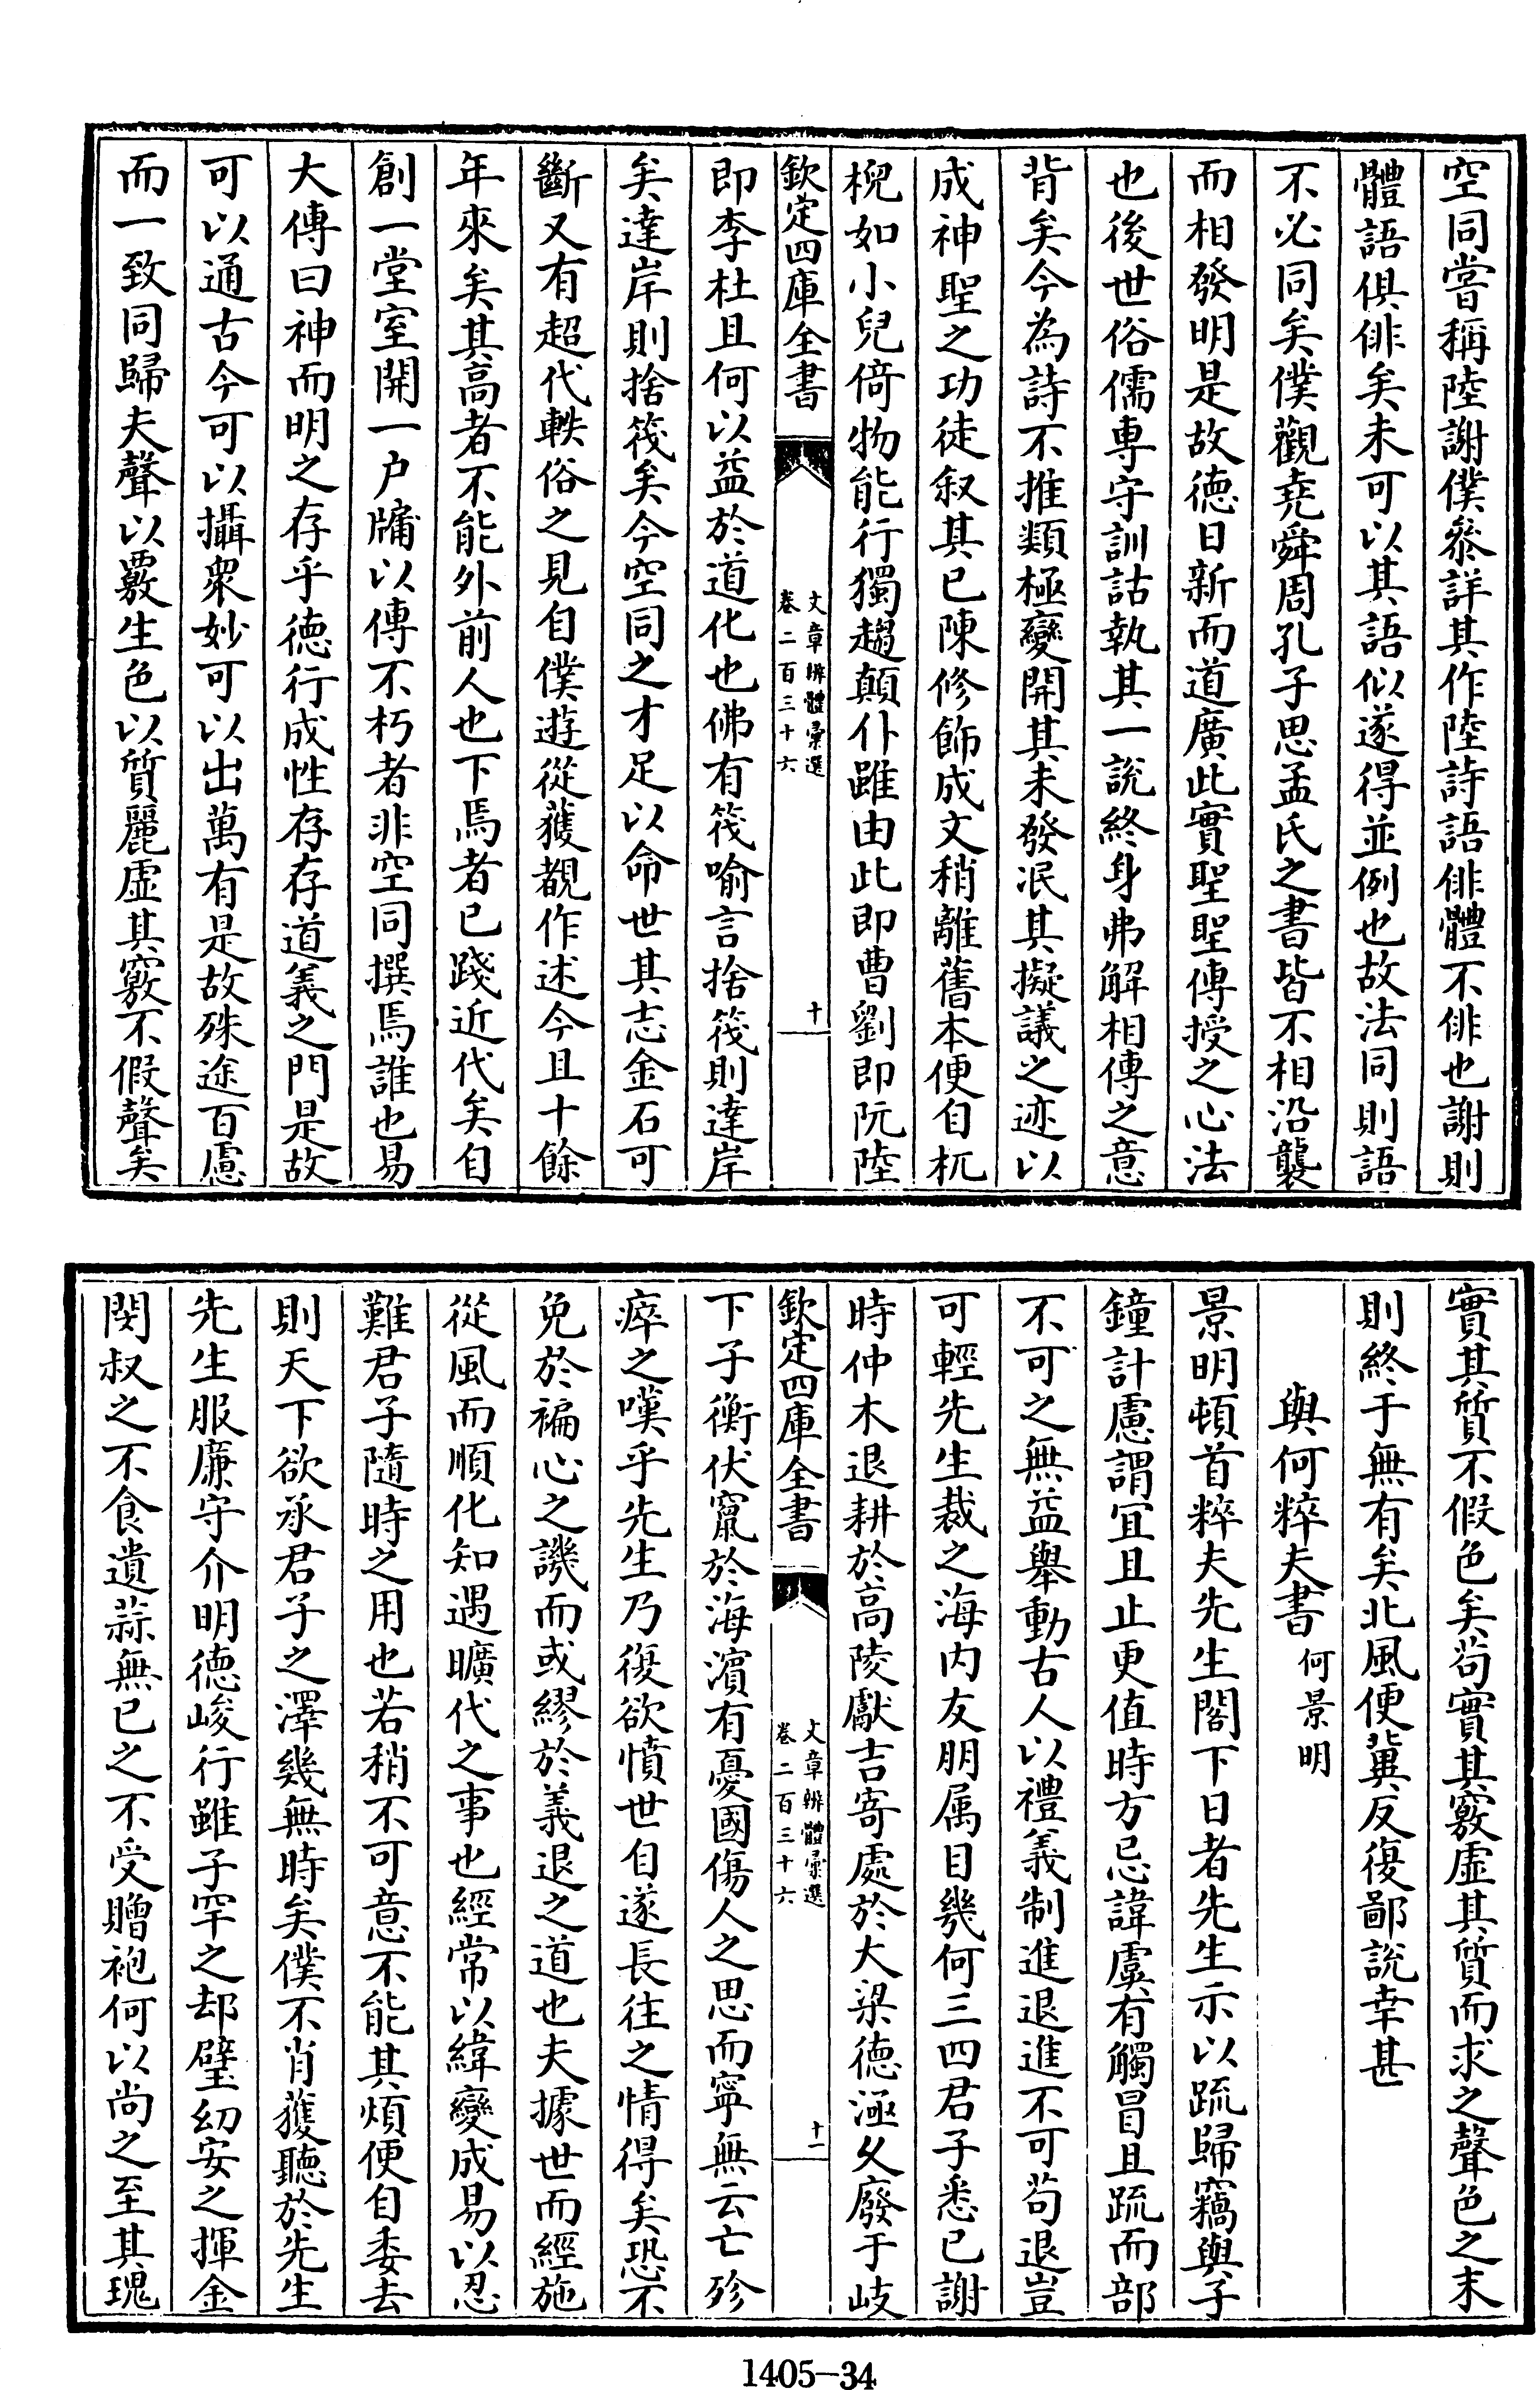 空同嘗稱陸謝僕參詳其作陸詩語俳體不俳也謝則
體語俱俳矣未可以其語似遂得並例也故法同則語
不必同矣僕觀堯舜周孔子思孟氏之書皆不相沿襲
而相發明是故徳日新而道廣此實聖聖傳授之心法
也後世俗儒専守訓詁執其一說終身弗解相傳之意
背矣今為詩不推類極變開其未發泯其擬議之迹以
成神聖之功徒叙其已陳修飾成文稍離舊本便自杌
棿如小兒倚物能行獨趨顛仆雖由此即曹劉即阮陸
欽定四庫全書
文章辨體彙選
卷二百三十六
十
即李杜且何以益於道化也佛有筏喻言捨筏則達岸
矣達岸則捨筏矣今空同之才足以命世其志金石可
斷又有超代軼俗之見自僕遊從獲覩作述今且十餘
年來矣其高者不能外前人也下焉者已踐近代矣自
創一堂室開一户牖以傳不朽者非空同撰焉誰也易
大傳曰神而明之存乎徳行成性存存道義之門是故
可以通古今可以攝衆妙可以出萬有是故殊途百慮
而一致同歸夫聲以竅生色以質麗虚其竅不假聲矣
實其質不假色矣茍實其竅虚其質而求之聲色之末
則終于無有矣北風便冀反復鄙說幸甚
與何粹夫書 何景明
景明頓首粹夫先生閣下日者先生示以疏歸竊與子
鐘計慮謂宜且止更值時方忌諱虞有觸冒且疏而部
不可之無益舉動古人以禮義制進退進不可茍退豈
可輕先生裁之海内友朋属目幾何三四君子悉已謝
時仲木退耕於高陵獻吉寄處於大梁徳涵久廢于岐
欽定四庫全書
文章辨體彙選
卷二百三十六
十一
下子衡伏竄於海濵有憂國傷人之思而寧無云亡殄
瘁之嘆乎先生乃復欲憤世自遂長往之情得矣恐不
免於褊心之譏而或繆於義退之道也夫據世而經施
從風而順化知遇曠代之事也經常以緯變成易以忍
難君子隨時之用也若稍不可意不能其煩便自委去
則天下欲承君子之澤幾無時矣僕不肖獲聽於先生
先生服廉守介明徳峻行雖子罕之却璧幼安之揮金
閔叔之不食遺蒜無已之不受贈袍何以尚之至其瑰
1405—34